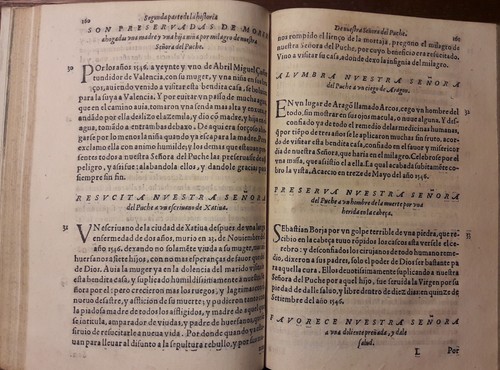 160
Segunda parte de la historia
SON PRESERVADAS DE MORIR
ahogadas vna madre y vna hija niña por milagro de nuestra
Señora del Puche.
30
POr los años 1546. a veynte y vno de Abril Miguel
fundidor de Valencia, con su muger, y vna niña en sus
ços, auiendo venido a visitar esta bendita casa, se boluian
para la suya a Valencia. Y por euitar vn passo de mucha agua,
que en el camino auia, tomaron vna senda mas alta y
andando por ella deslizo el azemila, y dio cō madre, y hija
agua, tomādo a entrambas debaxo. De qui era forçoso
garse por lo menos la niña quando ya escapara la madre. Pero
cierto el fauor del cielo las guardò. Por que estas dos
sentes todos a nuestra Señora del Puche las preseruasse del
peligro, y assi fue: alabandola ellos, y dandole gracias por
siempre sin fin.
RESVCITA NVESTRA SEÑORA
del Puche a vn escriuano de Xatiua.
31
VN escriuano de la ciudad de Xatiua despues de vna
enfermedad de dos años, murio en 25. de Nouiembre
año 1546. dexando no solamēte viuda a su muger,
huerfanos a siete hijos, con no mas esperanças de sauor que
de Dios. Auia la muger ya en la dolencia del marido visitado
esta bendita casa, y suplicado humildissimamente a nuestra
ñora por el: pero crecieron mas los rigurosos, y las lagrimas
nuestro desastre, y aflicion de su muerte; y pudieron tanto
la piadosa madre de todos los afligidos, y madre de aquel que
se intitula, amparador de viudas, y padre de huerfanos,
fruio de resucitarle a nueua vida. Por donde quando ya
uan para lleuar al difunto a la sepultura rebullo, y por
De nuestra Señora del Puche.
160
nos rompido el lienço de la mortaja, pregono el milagro de
nuestra Señora del Puche, por cuyo beneficio era resuscitado.
Vino a visitar su casa, adonde dexo la insignia del milagro.
ALVMBRA NVESTRA SEÑORA
del Puche a vn ciego de Aragon.
32
EN vn lugar de Aragō llamado Arcos, cego vn hombre del
todo, sin mostrar en sus ojos macula, o nuue alguna. Y des-
confiado ya de todo el remedio de las medicinas humanas,
que por tiempo de tres años se le aplicaron muchas sin fruto, acor-
dò de visitar esta bendita casa, confiado en el fauor y misericor-
dia de nuestra Señora, que haria en el milagro. Celebrose por el
vna missa, que assistio el a ella. En la qual acabada subitamēte co-
bro la vista. Acaecio en treze de Mayo del año. 1546.
PRESERVA NVESTRA SEÑORA
del Puche a vn hombre de la muerte por vna
herida en la cabeça.
33
SEbastian Borja por vn golpe terrible de vna piedra, que re-
cibio en la cabeça tuuo rōpidos los cascos hasta verse el cele-
rebro: y desconfiados los cirujanos de todo humano remedio,
dixeron a sus padres, que solo el poder de Dios era bastante pa-
ra aquella cura. Ellos deuotissimamente suplicando a nuestra
Señora del Puche por aquel hijo, fue seruida la Virgen por su
piedad de dalle salud, y libro dentro de diez dias: en quinze de
Setiembre del año 1546.
FAVORECE NVESTRA SEÑORA
a vna doliente preñada, y dale
salud.
L
Por